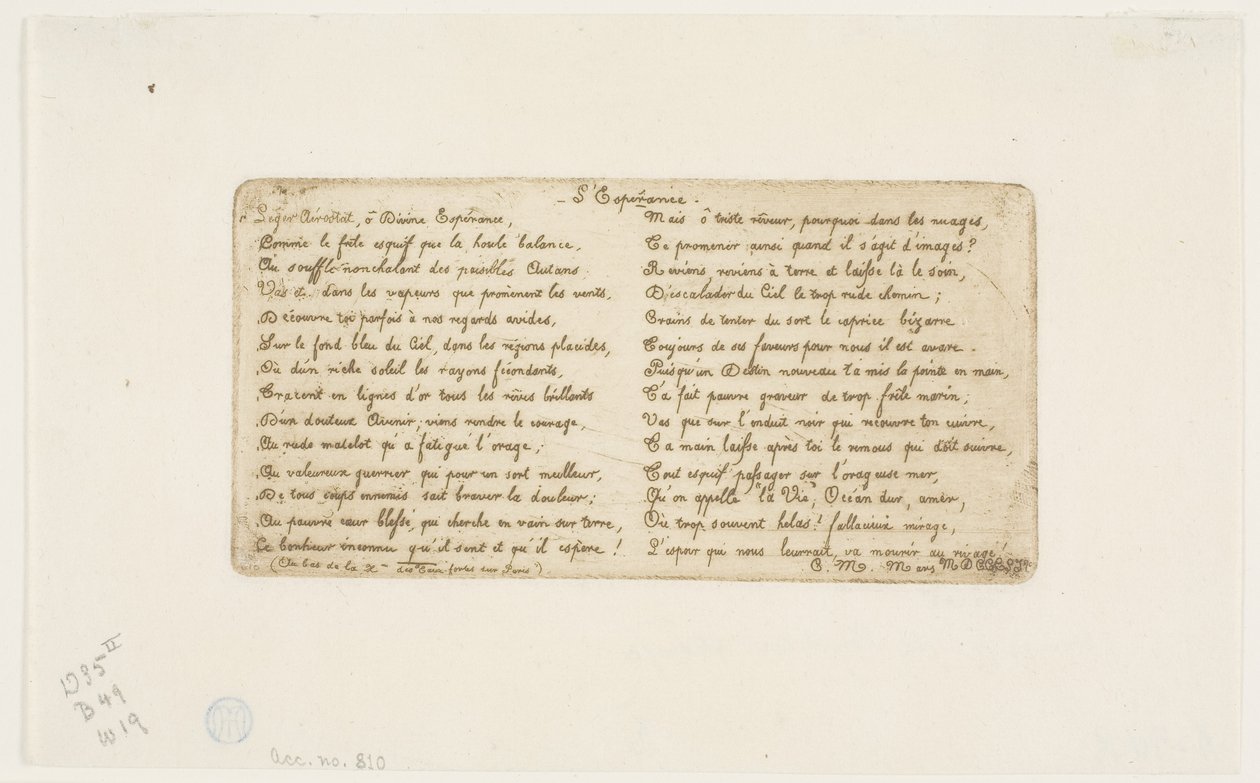 - L'Espérance.
Léger Aérostat, ô Divine Espérance,
Comme le frêle esquif que la houle balance,
Au souffle nonchalant des paisibles Autans
Vas et dans les vapeurs que promènent les vents,
Découvre toi parfois à nos regards avides,
Sur le fond bleu du Ciel, dans les régions placides,
Où d'un riche soleil les rayons fécondants,
Tracent en lignes d'or tous les rêves brillants
D'un douteux Avenir; viens rendre le courage,
Au rude matelot qu'a fatigué l'orage;
Au valeureux guerrier qui pour un sort meilleur,
De tous coups ennemis sait braver la douleur;
Au pauvre cœur blessé, qui cherche en vain sur terre,
Ce bonheur inconnu qu'il sent et qu'il espère!
(Au bas de la X - des Eaux-fortes sur Paris)
Mais ô triste rêveur, pourquoi dans les nuages,
Te promener ainsi quand il s'agit d'images?
Reviens, reviens à terre et laisse là le soin,
D'escalader du Ciel le trop rude chemin;
Crains de tenter du sort le caprice bizarre
Toujours de ses faveurs pour nous il est avare.
Puisqu'un Destin nouveau t'a mis la pointe en main,
T'a fait pauvre graveur de trop frêle marin;
Vas que sur l'enduit noir qui recouvre ton cuivre,
Ta main laisse après toi le remous qui doit suivre,
Tout esquif passager sur l'orageuse mer,
Qu'on appelle "la Vie", Océan dur, amèr,
Où trop souvent helas! fallacieux mirage,
L'espoir qui nous leurrait, va mourir au rivage!
C. M. Mars
D35 II
B 49
W 19
Acc. no. 810